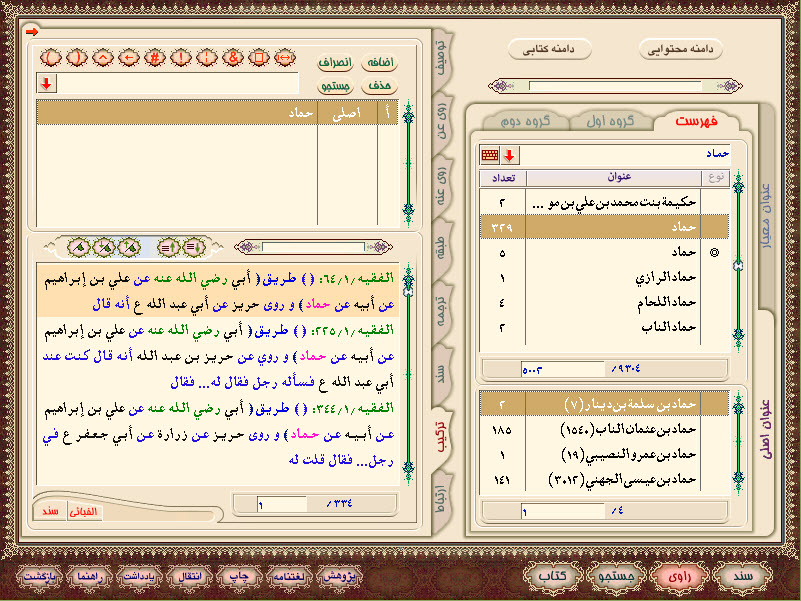 دامنه محتوایی
دامنه کتابی
فهرست
گروه اول
گروه دوم
حماد
نوع
عنوان
تعداد
حكيمة بنت محمد بن علي بن مو ... ٢
حماد ٣٢٩
حماد ٥
حماد الرازي ١
حماد اللحام ٤
حماد الناب ٢
٥٠٠٢ /٩٣٠٤
حماد بن سلمة بن دينار (٧) ٢
حماد بن عثمان الناب (١٥٤٠) ١٨٥
حماد بن عمرو النصيبي (١٩) ١
حماد بن عيسى الجهني (٣٠١٢) ١٤١
١ /٤
عنوان معیار
عنوان اصلی
توصیف
روی عن
روی عنه
طبقه
ترجمه
سند
ترکیب
ارتباط
( ) ^ ← # ! ¦ & □ ↔
اضافه
انصراف
حذف
جستجو
أ اصلی حماد
الفقيه/١/٦٤: ( ) طريق( أبي رضي الله عنه عن علي بن إبراهيم
عن أبيه عن حماد) و روى حريز عن أبي عبد الله ع أنه قال
الفقيه/١/٢٢٥: ( ) طريق( أبي رضي الله عنه عن علي بن إبراهيم
عن أبيه عن حماد) و روي عن حريز بن عبد الله أنه قال كنت عند
أبي عبد الله ع فسأله رجل فقال له... فقال
الفقيه/١/٣٤٤: ( ) طريق( أبي رضي الله عنه عن علي بن إبراهيم
عن أبيه عن حماد) و روى حريز عن زرارة عن أبي جعفر ع في
رجل... فقال قلت له
١ /٣٣٤
الفبائی
سند
سند
راوی
جستجو
کتاب
پژوهش
لغتنامه
چاپ
انتقال
یادداشت
راهنما
بازگشت